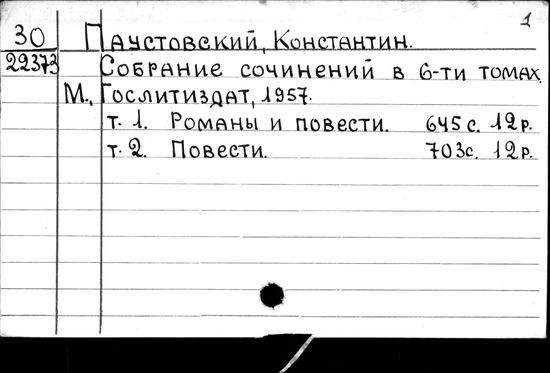 1
30 Паустовский, Константин.
22373 Собрание сочинений в 6-ти томах
М., Гослитиздат, 1957.
т. 1. Романы и повести. 645 с. 12 р.
т. 2. Повести. 703 с. 12 р.